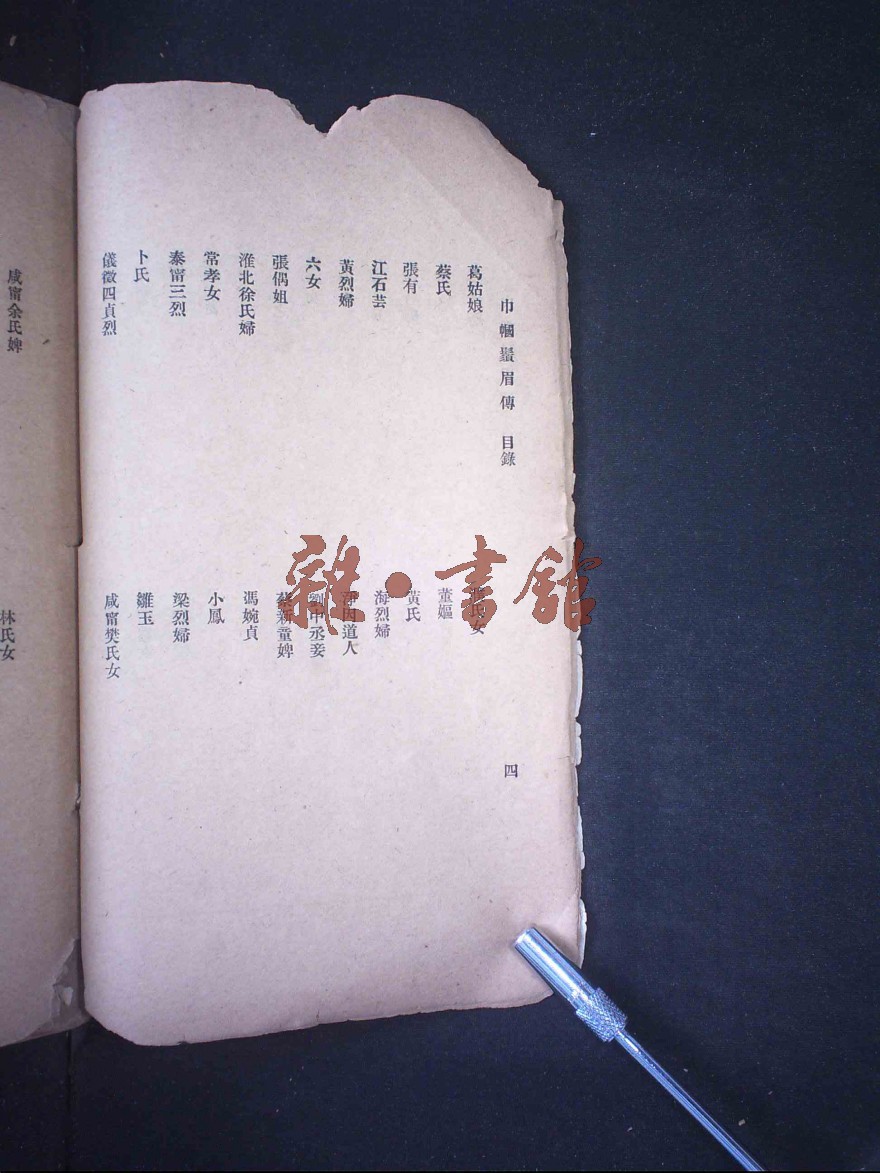 巾幗鬚眉傳 目錄 四
葛姑娘
蔡氏
張有
江石芸
黃烈婦
六女
張偶姐
淮北徐氏婦
常孝女
泰甯三烈
卜氏
儀徵四貞烈
氏女
董嫗
黃氏
海烈婦
淨因道人
劉中丞妾
蔡新童婢
馮婉貞
小鳳
梁烈婦
雛玉
咸甯樊氏女
咸甯余氏婢
林氏女
雜·書館